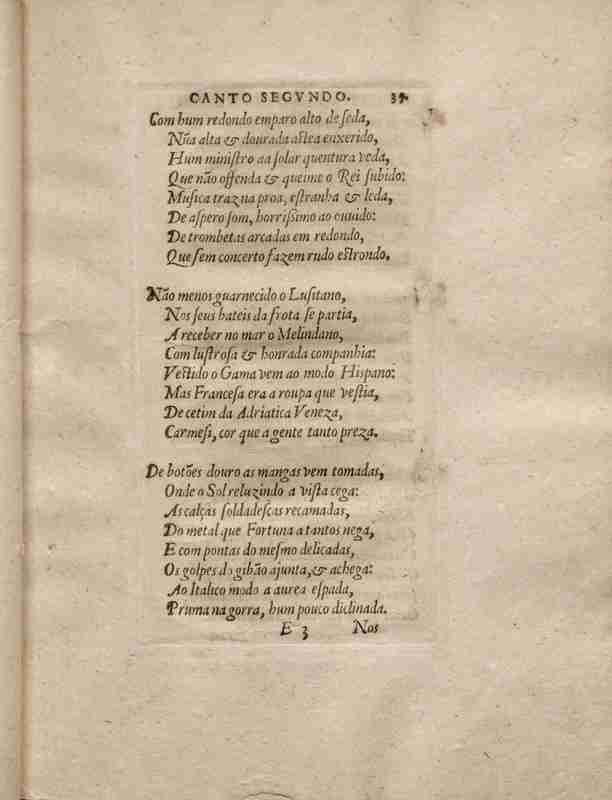 CANTO SEGVNDO. 35
Com hum redondo emparo alto de ſeda,
Nũa alta & dourada aſtea enxerido,
Hum miniſtro aa ſolar quentura veda,
Que não offenda & queime o Rei ſubido:
Muſica traz na proa, eſtranha & leda,
De aſpero ſom, horriſsimo ao ouuido:
De trombetas arcadas em redondo,
Que ſem concerto fazem rudo eſtrondo.
Não menos guarnecido o Luſitano,
Nos ſeus bateis da frota ſe partia,
A receber no mar o Melindano,
Com luſtroſa & honrada companhia:
Veſtido o Gama vem ao modo Hispano:
Mas Franceſa era a roupa que veſtia,
De cetim da Adriatica Veneza,
Carmeſi, cor que a gente tanto preza.
De botões douro as mangas vem tomadas,
Onde o Sol reluzindo a viſta cega:
As calças ſoldadeſcas recamadas,
Do metal que Fortuna a tantos nega,
E com pontas do meſmo delicadas,
Os golpes do gibão ajunta, & achega:
Ao Italico modo a aurea eſpada,
Pruma na gorra, hum pouco diclinada.
E 3 Nos